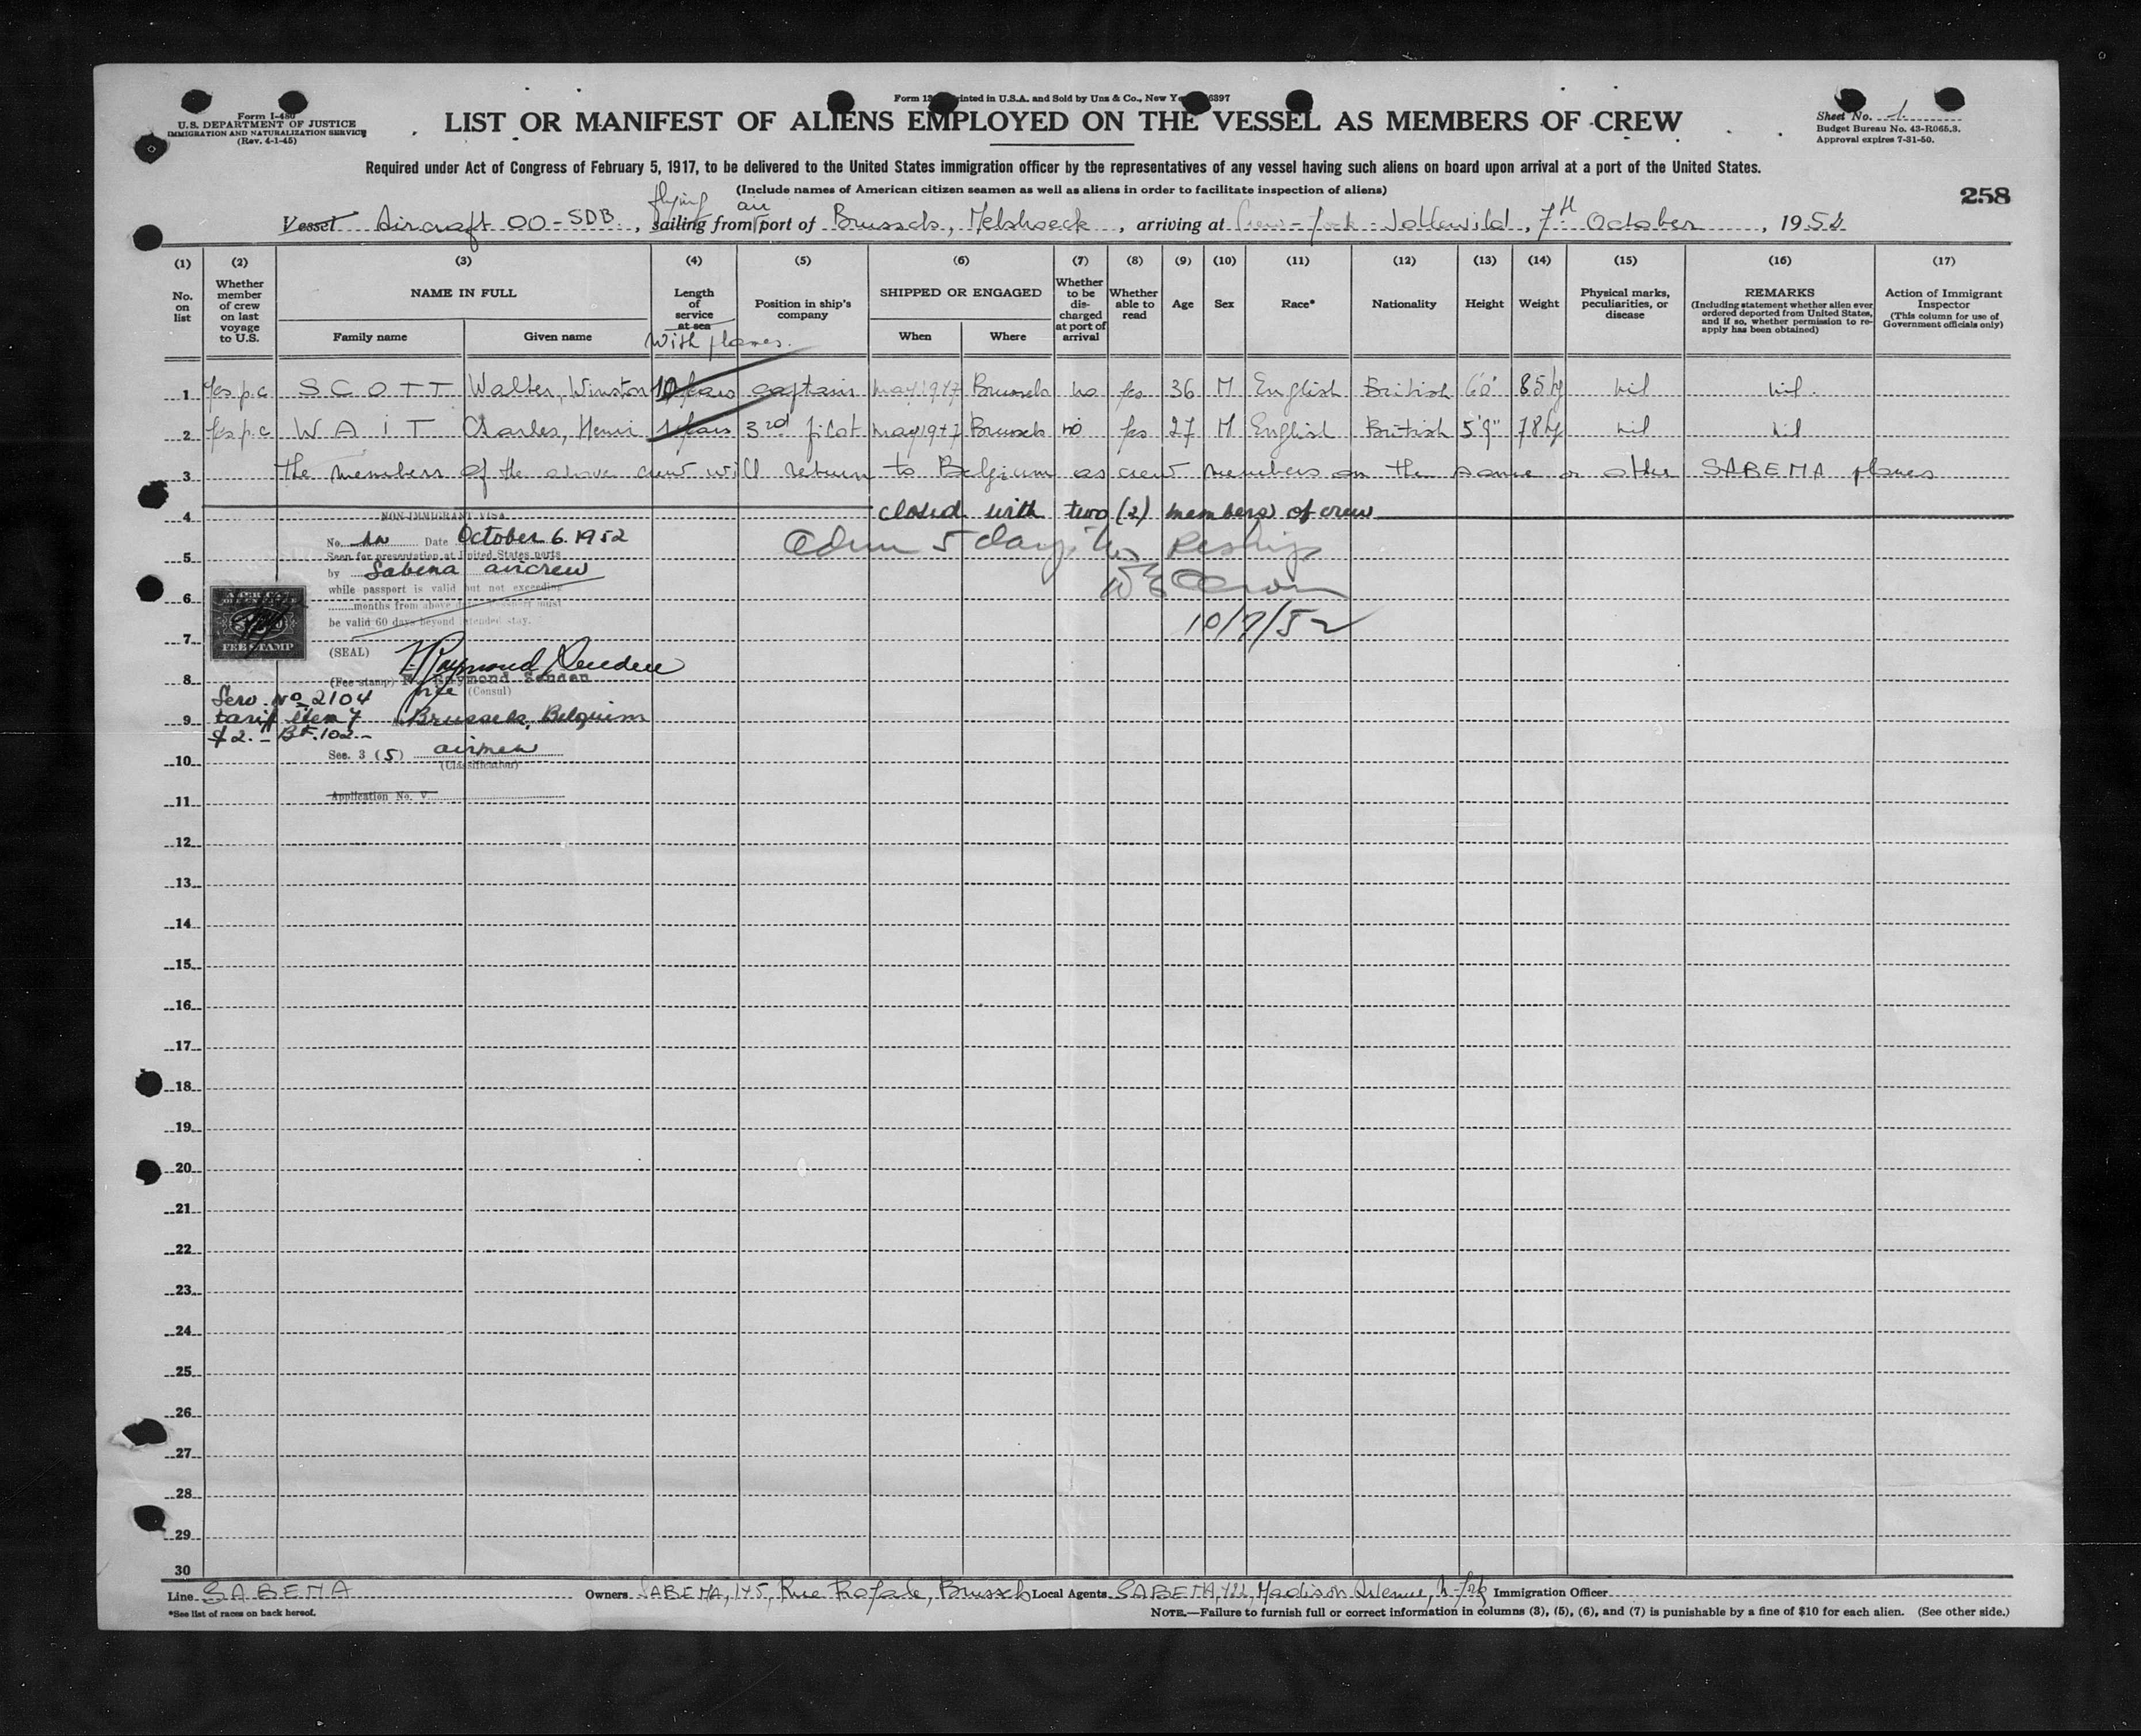 Form I-480
U.S. DEPARTMENT OF JUSTICE
IMMIGRATION AND NATURALIZATION SERVICE
(Rev. 4-1-45)
Printed in U.S.A. and Sold by Unz & Co., New
LIST OR MANIFEST OF ALIENS EMPLOYED ON THE VESSEL AS MEMBERS OF CREW
Sheet No. 1
Budget Bureau No. 43-R065.3.
Approval expires 7-31-50.
Required under Act of Congress of February 5, 1917, to be delivered to the United States immigration officer by the representatives of any vessel having such aliens on board upon arrival at a port of the United States.
(Include names of American citizen seamen as well as aliens in order to facilitate inspection of aliens)
258
flying air
Vessel Aircraft OO-SDB, sailing from port of Brussels, Melsbroeck, arriving at New-York-Idlewild, 7th October, 1952
(1) (2) (3) (4) (5) (6) (7) (8) (9) (10) (11) (12) (13) (14) (15) (16) (17)
No. on list
Whether member of crew on last voyage to U.S.
NAME IN FULL
Family name Given name
Length of service at sea
With planes.
Position in ship's company
SHIPPED OR ENGAGED
When Where
Whether to be discharged at port of arrival
Whether able to read
Age
Sex
Race*
Nationality
Height
Weight
Physical marks, peculiarities, or disease
REMARKS
(Including statement whether alien ever ordered deported from United States, and if so, whether permission to re-apply has been obtained)
Action of Immigrant Inspector
(This column for use of Government officials only)
1 yes p.c SCOTT Walter, Winston 10 years captain may 1947 Brussels no yes 36 M English British 6'0" 85 kg nil nil.
2 yes p.c WAIT Charles, Henri years 3rd pilot may 1947 Brussels no yes 27 M English British 5'9" 78 kg nil nil
3 the members of the above crew will return to Belgium as crew members on the same or other SABENA planes
4 closed with two (2) members of crew
NON-IMMIGRANT VISA
No. Date October 6. 1952
5 Adm 5 days
Seen for presentation at United States ports
by Sabena aircrew
while passport is valid but not exceeding
6
months from above date. Passport must
be valid 60 days beyond intended stay.
10/7/52
7
FEE STAMP
(SEAL)
8
(Fee stamp) Raymond Senden
Vice (Consul)
Serv. No 2104
9
tarif item 7 Brussels, Belgium
$2.- BF. 102.-
10
Sec. 3 (5) airmen
(Classification)
Application No. V
11
12
13
14
15
16
17
18
19
20
21
22
23
24
25
26
27
28
29
30
Line SABENA Owners SABENA, 145, Rue Royale, Brussels Local Agents SABENA, 422, Madison Avenue, N-York Immigration Officer
*See list of races on back hereof.
NOTE.—Failure to furnish full or correct information in columns (3), (5), (6), and (7) is punishable by a fine of $10 for each alien. (See other side.)